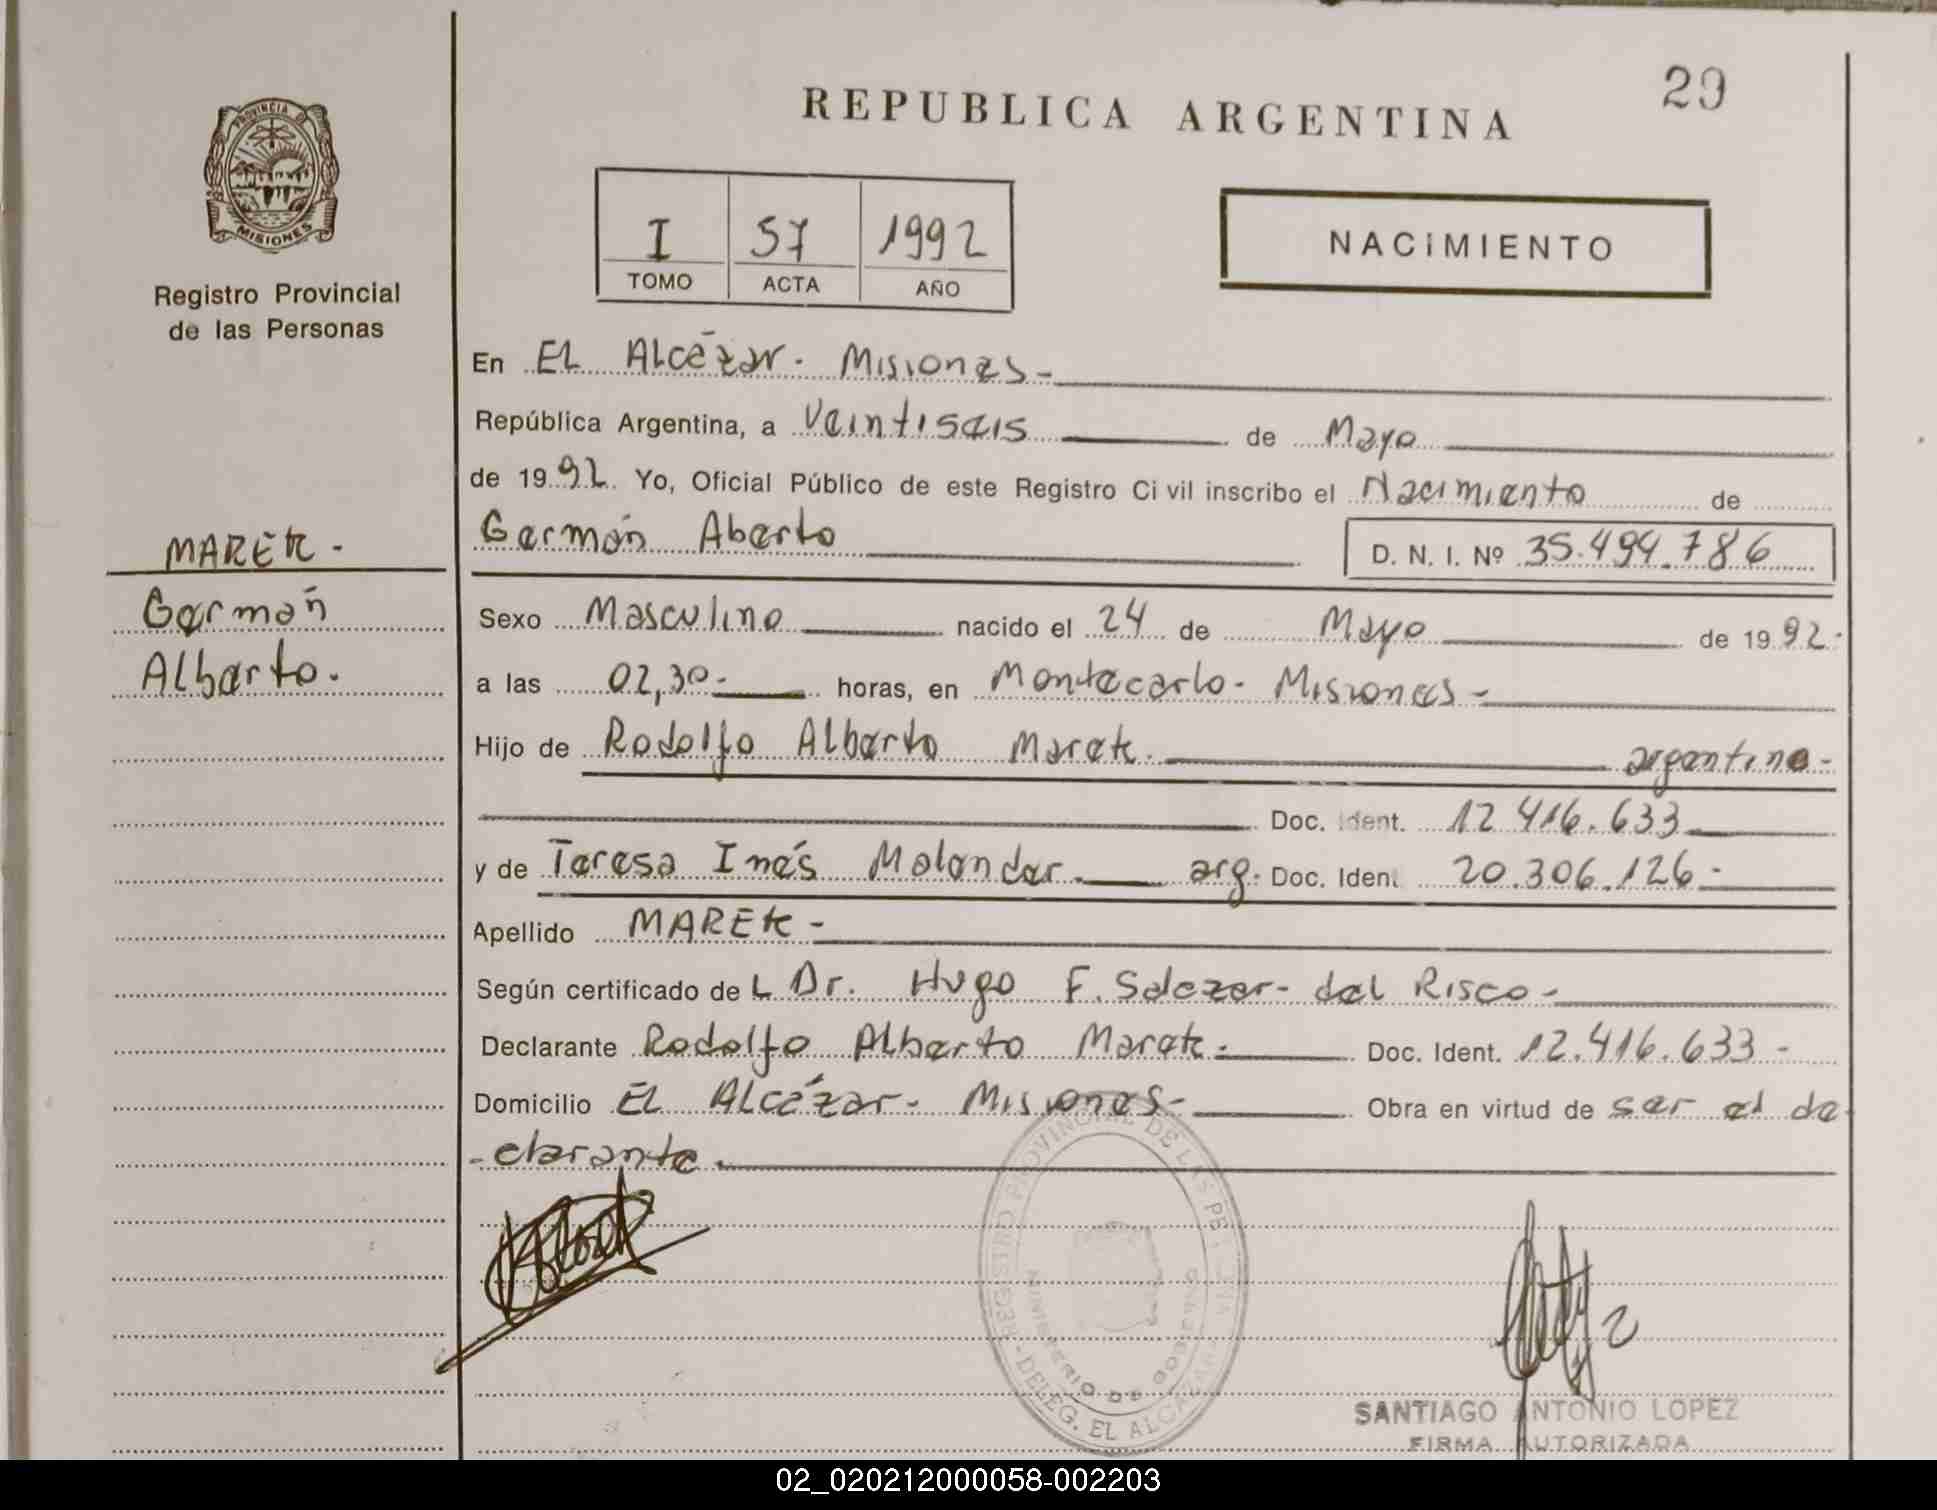 29
REPUBLICA ARGENTINA
PROVINCIA D
MISIONES
Registro Provincial
de las Personas
I 57 1992
TOMO ACTA AÑO
NACIMIENTO
En EL Alcázar - Misiones -
República Argentina, a Veintiseis de Mayo
de 1992 Yo, Oficial Público de este Registro Civil inscribo el Nacimiento de
Germán Aberto D. N. I. Nº 35.494.786
MAREK -
Germán
Alberto.
Sexo Masculino nacido el 24 de Mayo de 1992-
a las 02,30- horas, en Montecarlo - Misiones -
Hijo de Rodolfo Alberto Marek. argentino -
Doc. Ident. 12.416.633
y de Teresa Inés Molender. arg. Doc. Ident 20.306.126 -
Apellido MAREK -
Según certificado de L Dr. Hugo F. Salazar - del Risco -
Declarante Rodolfo Alberto Marek. Doc. Ident. 12.416.633 -
Domicilio EL Alcázar - Misiones - Obra en virtud de ser el de
- clarante.
REGISTRO PROVINCIAL DE LAS PERSONAS
MINISTERIO DE GOBIERNO
DELEG. EL ALCAZAR
SANTIAGO ANTONIO LOPEZ
FIRMA AUTORIZADA
02_020212000058-002203